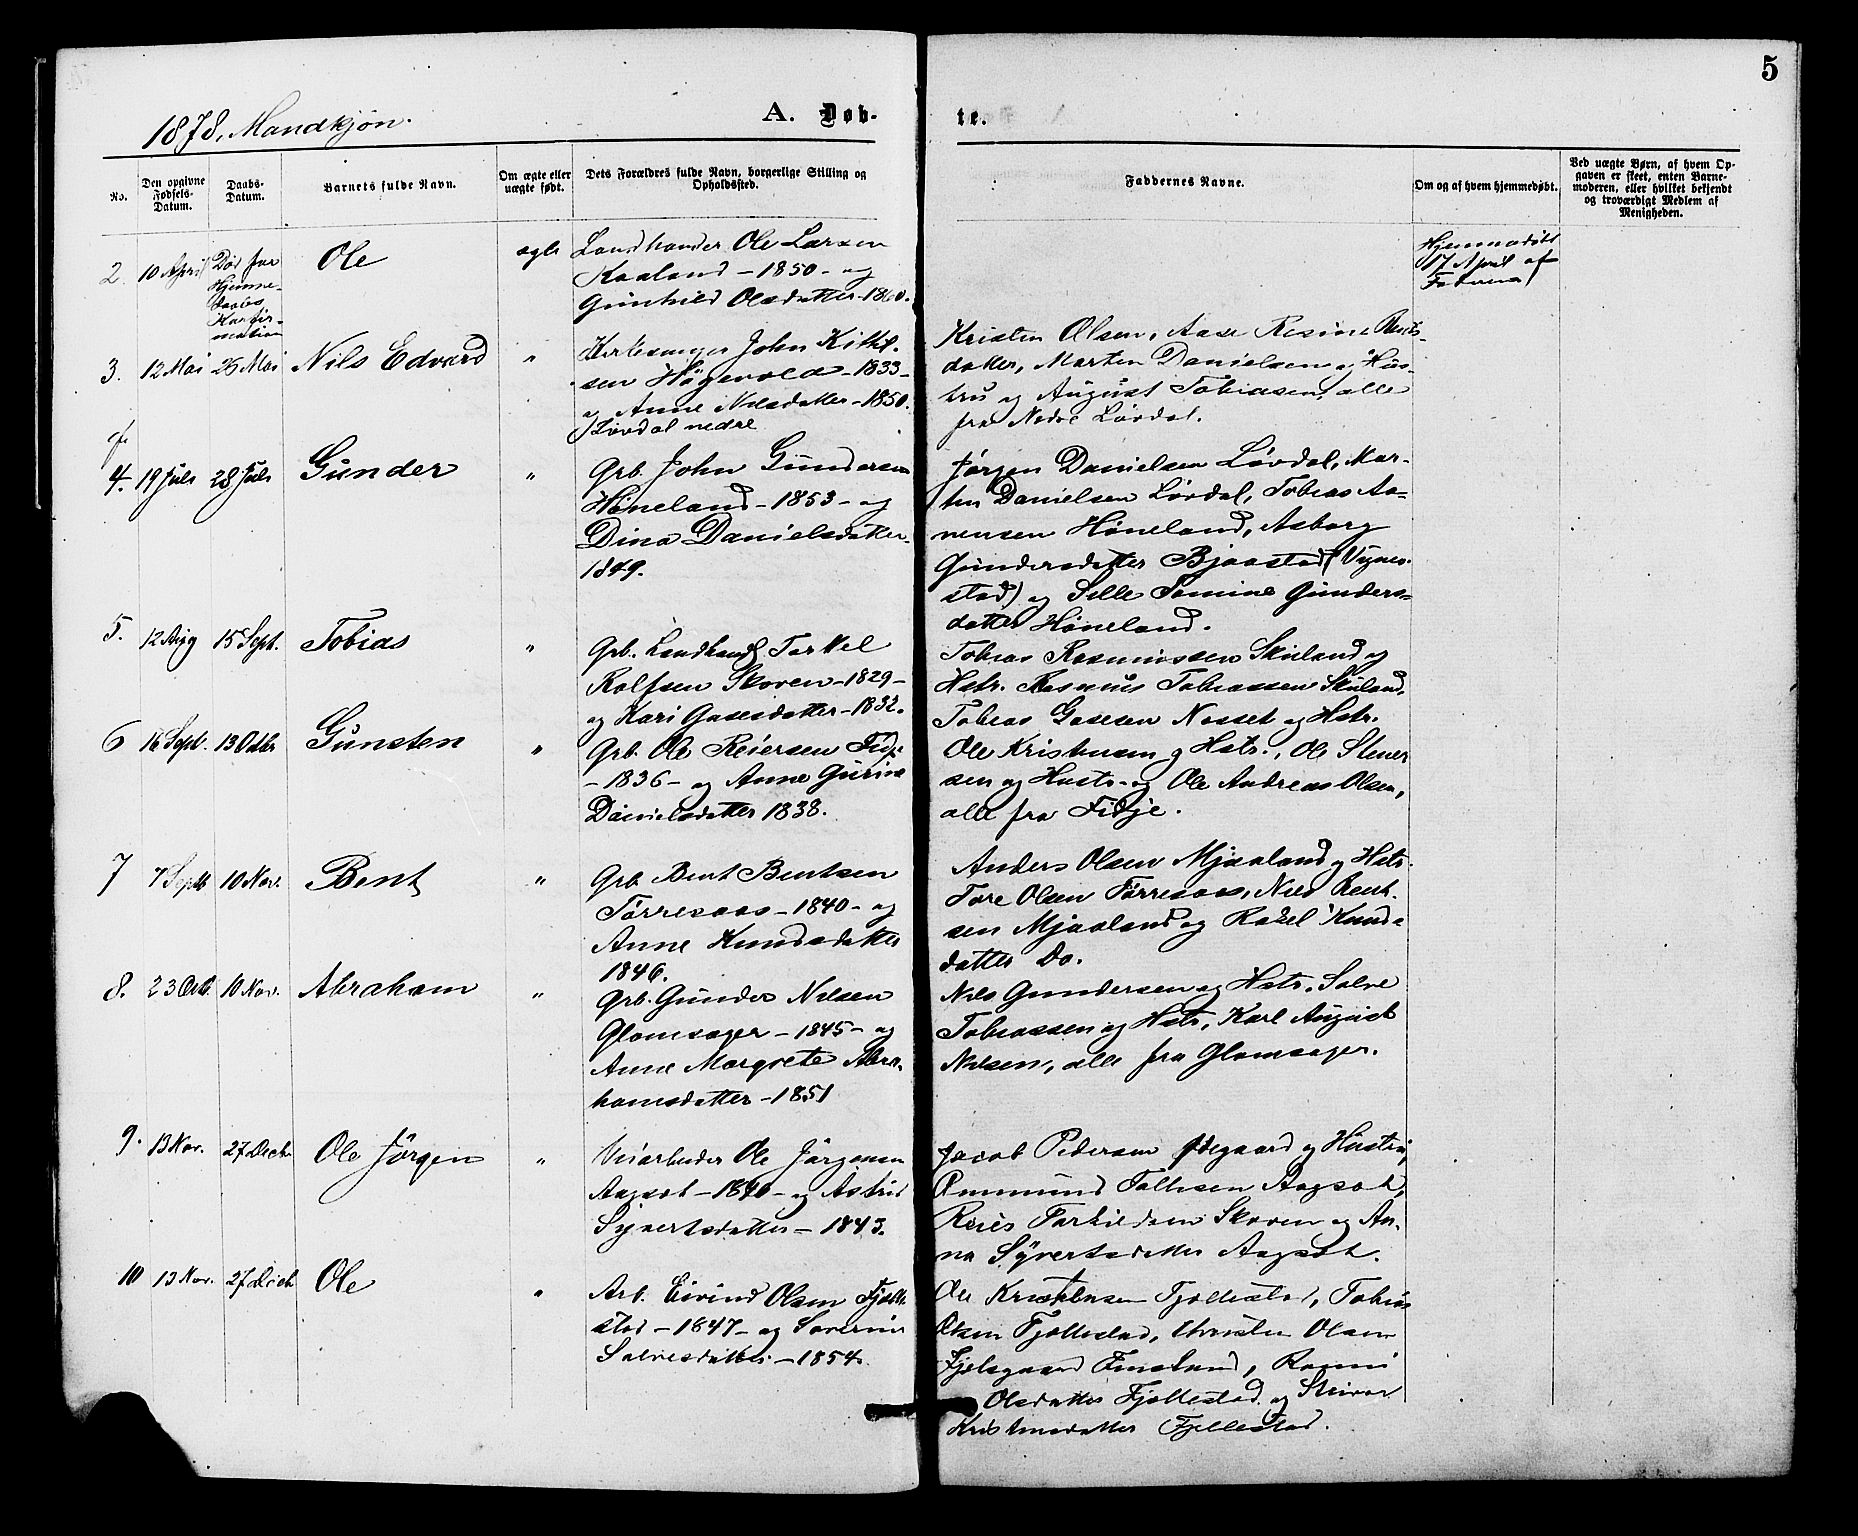 5
1878, Mandkjøn.
A. Døb-
te.
No.
Den opgivne
Fødsels-
Datum.
Daabs-
Datum.
Barnets fulde Navn.
Om ægte eller
uægte født.
Dets Forældres fulde Navn, borgerlige Stilling og
Opholdssted.
Faddernes Navne.
Om og af hvem hjemmedøbt.
Ved uægte Børn, af hvem Op-
gaven er skeet, enten Barne-
moderen, eller hvilket bekjendt
og troværdigt Medlem af
Menigheden.
2
10 April
Død før
Hjemme-
daabes
Konfir-
mation
Ole
ægte
Landhandler Ole Larsen
Kaaland - 1850 - og
Gunhild Olsdatter - 1860.
Hjemmedøbt
17 April af
Faderen
3.
12 Mai
26 Mai
Nils Edvard
"
Kirkesanger John Kittil-
sen Høgevold - 1833 -
og Anne Nilsdatter - 1850.
Løvdal nedre
Kristen Olsen, Aase Resine Bents-
datter, Morten Danielsen og Hus-
tru og August Tobiasen, alle
fra Nedre Løvdal.
4.
19 Juli
28 Juli
Gunder
"
Grb. John Gundersen
Høneland - 1853 - og
Dina Danielsdatter -
1849.
Jørgen Danielsen Løvdal, Mor-
ten Danielsen Løvdal, Tobias Aa-
nensen Høneland, Asborg
Gundersdatter Bjaastad (Vignes-
stad) og Sille Tomine Gunders-
datter Høneland.
5.
12 Aug
15 Sept.
Tobias
"
Grb. Landhandl Torkel
Rolfsen Skoren - 1829 -
og Kari Gasesdatter - 1832.
Tobias Rasmussen Skuland og
Hstr. Rasmus Tobiassen Skuland,
Tobias Gasesen Nosset og Hstr.
6
16 Sept.
13 Octbr
Gunsten
"
Grb. Ole Reiersen Fidje
- 1836 - og Anne Gurine
Danielsdatter 1838.
Ole Kristensen og Hstr., Ole Stener
sen og Hustr. og Ole Andreas Olsen,
alle fra Fidje.
7
7 Septb
10 Nov.
Bent
"
Grb. Bent Bentsen
Tørresaas - 1840 - og
Anne Knudsdatter
1846.
Anders Olsen Mjaaland og Hstr.
Tore Olsen Tørresaas, Nils Bent
sen Mjaaland og Rakel Knuds-
datter Do.
8.
23 Octb.
10 Nov.
Abraham
"
Grb. Gunder Nilsen
Glomsager - 1845 - og
Anne Margrete Abra-
hamsdatter - 1851
Nils Gundersen og Hstr, Salve
Tobiassen og Hstr, Karl August
Nilsen, alle fra Glomsager.
9.
13 Nov.
27 Decbr
Ole Jörgen
"
Veiarbeider Ole Jörgensen
Aagsøt - 1840 - og Astrid
Syvertsdatter - 1843.
Jacob Pedersen Ødegaard og Hustru,
Ommund Tallesen Aagsøt,
Reier Torkildsen Skoren og An-
na Syvertsdatter Aagsøt.
10
13 Nov.
27 Decb
Ole
"
Arb. Eivind Olsen Fjelle-
stad - 1847 - og Severine
Salvesdatter - 1854.
Ole Kristensen Fjellestad, Tobias
Olsen Fjellestad, Christen Olsen
Fjelsgaard Finsland,
Olsdatter Fjellestad og
Kristensdatter Fjellestad.